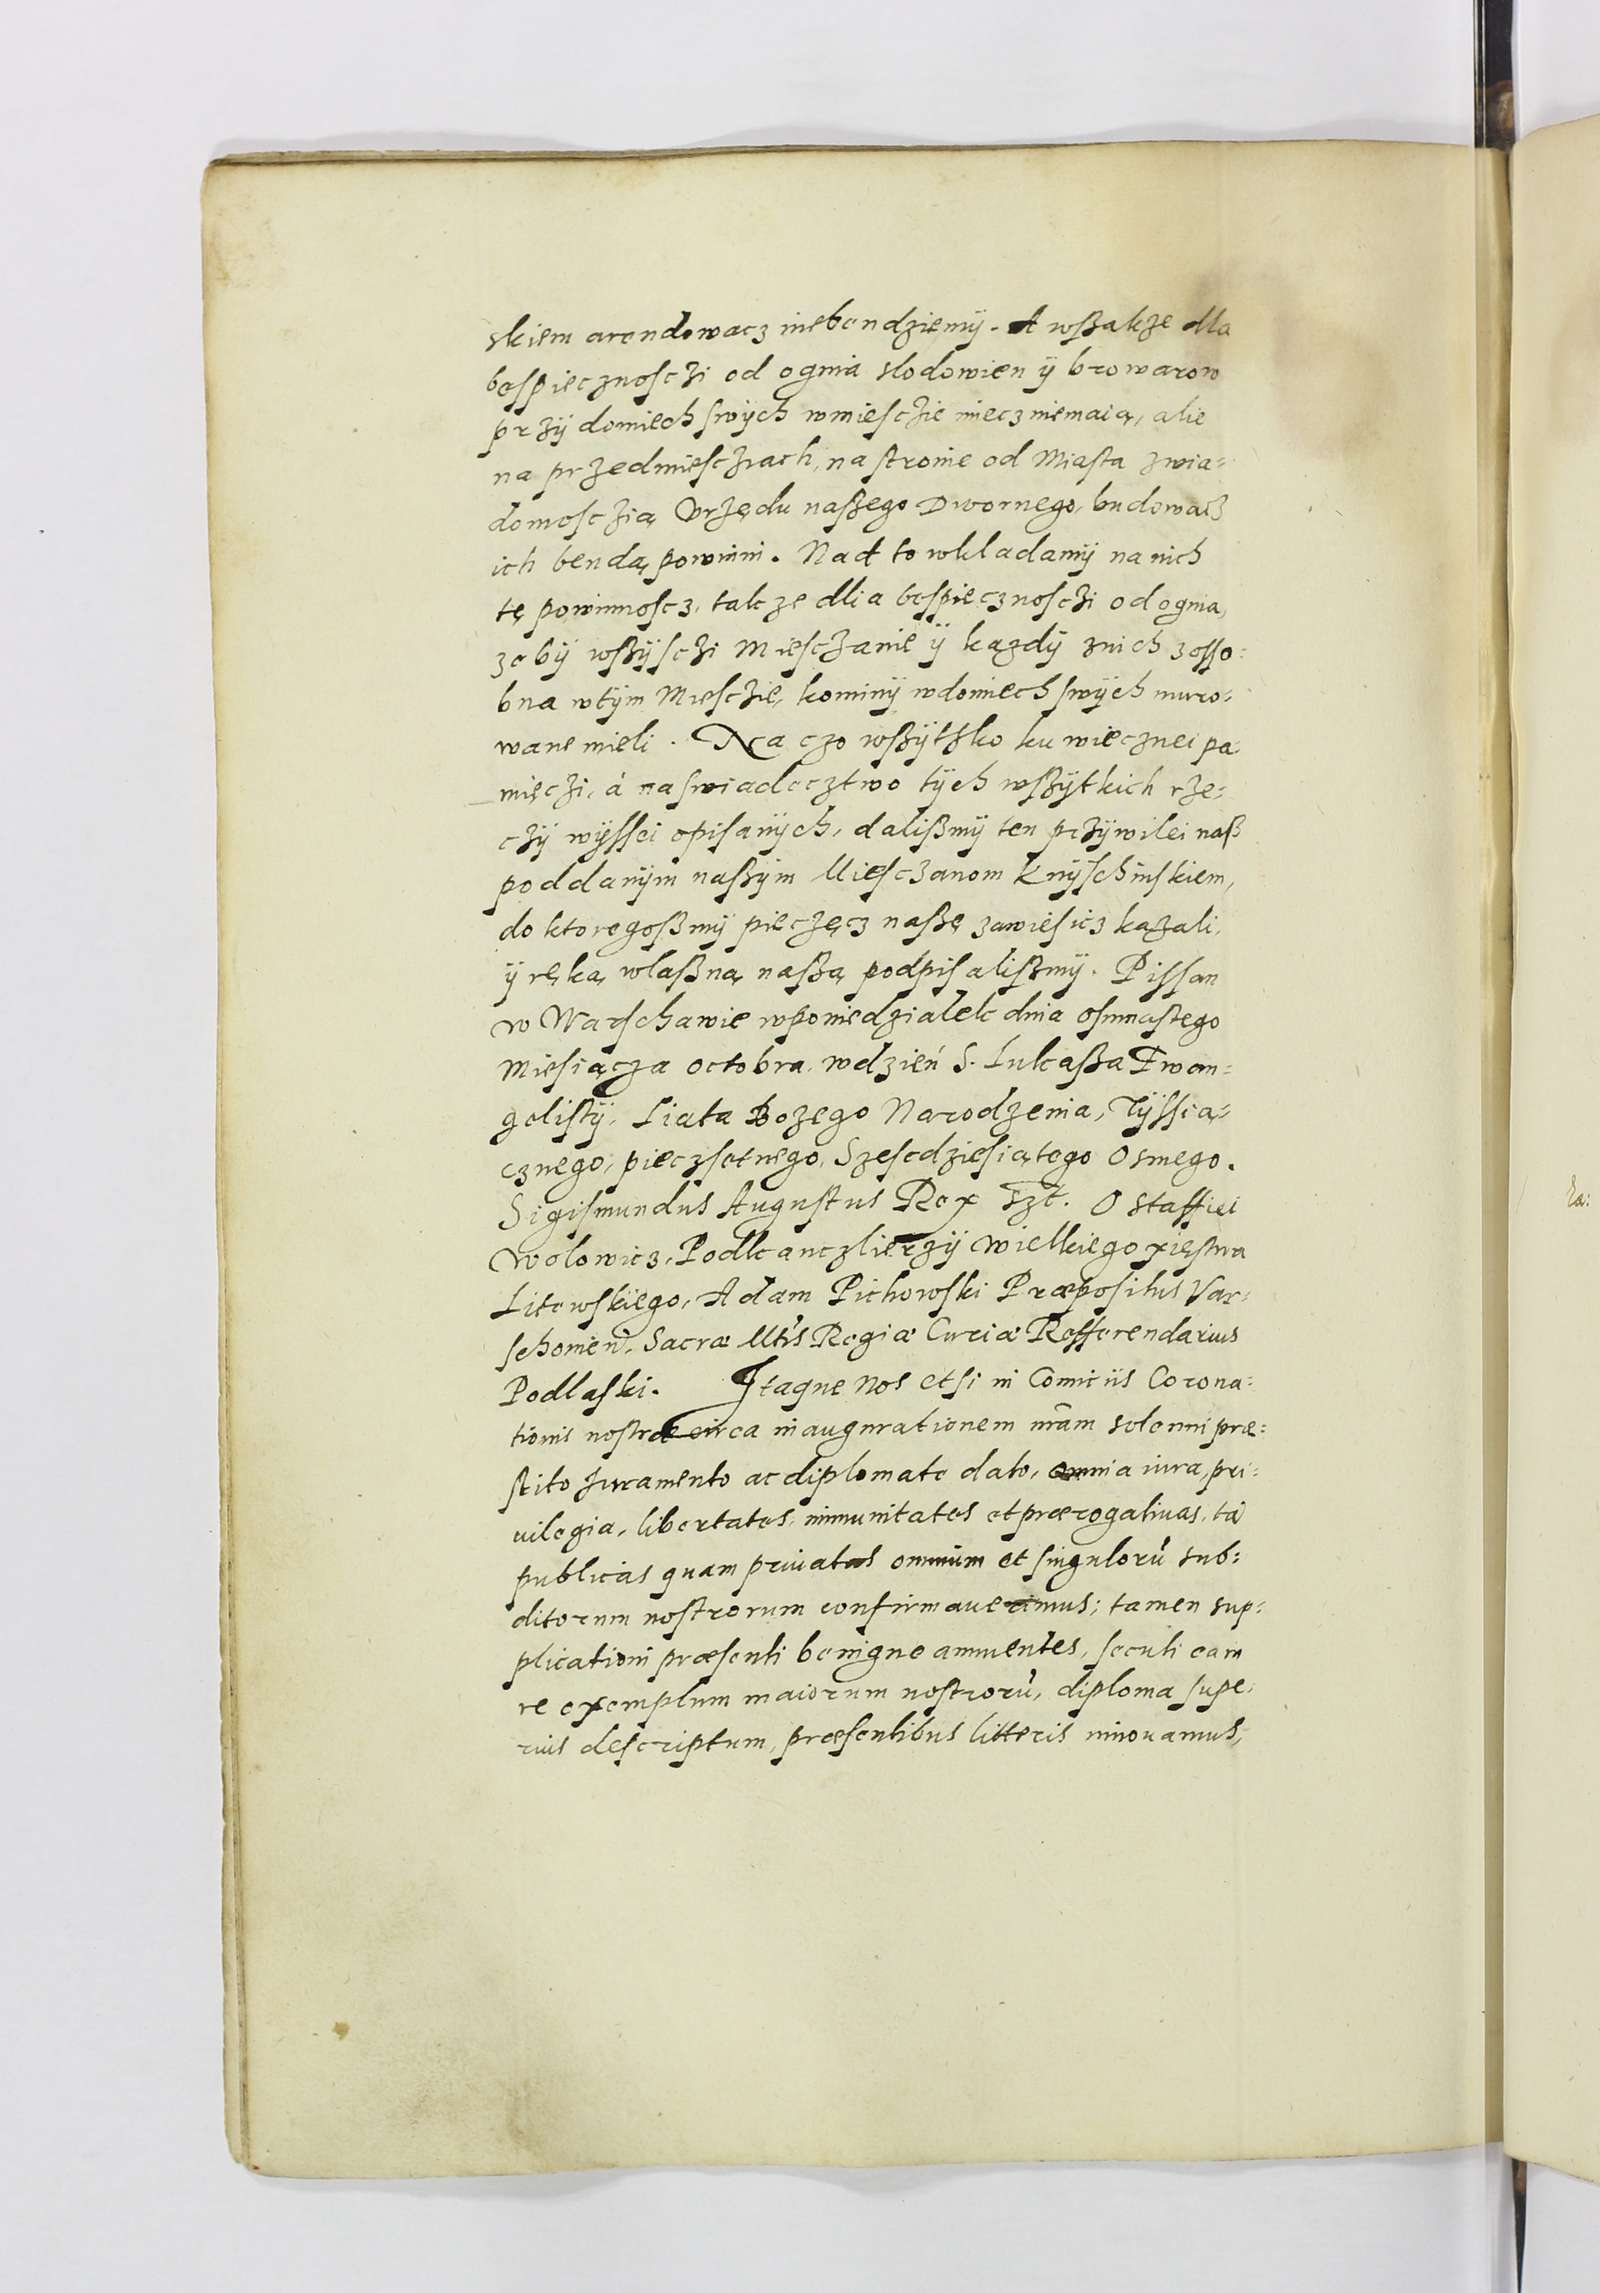 skiem arendowacz niebendziemÿ. A wßakże dla
bespiecznosczi od ognia slodowien ÿ browarow
prżÿ domiech swÿch wmiesczie miecz niemaią, alie
na przedmiesczach, na stronie od Miasta zwia=
domosczią Vrzędu naßego Dwornego, budowacz
ich bendą powinni. Nad to wkladamÿ na nich
tę powinnoscz, takze dlia bespiecznosczi od ognia,
zebÿ wßÿsczi Miesczanie ÿ kazdÿ znich zosso=
bna wtÿm Miesczie, kominÿ wdomiech swÿch muro=
wane mieli. Na czo wßÿtsko ku wiecznei pa
mięczi, á na swiadecztwo tÿch wßÿtkich rze=
czÿ wÿssei opisanÿch, dalißmÿ ten przÿwilei naß
poddanÿm naßÿm Miesczanom Knÿschinskiem,
do ktoregoßmÿ pieczęcz naßę zawiesicz kazali,
ÿ ręką wlaßną naßą podpisalißmÿ. Pissan
w Warschawie wponiedzialek dnia osmnastego
Miesiącza octobra, wdzień S. Lukaßa Ewan=
gelistÿ, Liata Bozego Narodzenia, Tÿssią=
cznego, pieczsetnego, Szescdziesiątego Osmego.
Sigismundus Augustus Rex szt. Ostaffiei
Wolowicz, Podkanczlierzÿ Wielkiego xięstwa
Litewskiego, Adam Pichowski Præpositus Var=
schouien, Sacræ Mtis Regiæ Curiæ Refferendarius
Podlaski. Itaque Nos etsi in Comitiis Corona=
tionis nostræ circa inaugurationem nram solenni præ=
stito Juramento ac diplomate dato, omnia iura, pri=
uilegia, libertates, immunitates et prærogatiuas, tā
publicas quam priuatas omnium et singulorū sub=
ditorum nostrorum confirmauerimus; tamen sup=
plicationi præsenti benigne annuentes, secuti eam
re exemplum maiorum nostrorū, diploma supe=
rius descriptum, præsentibus litteris innouamus,
ra: